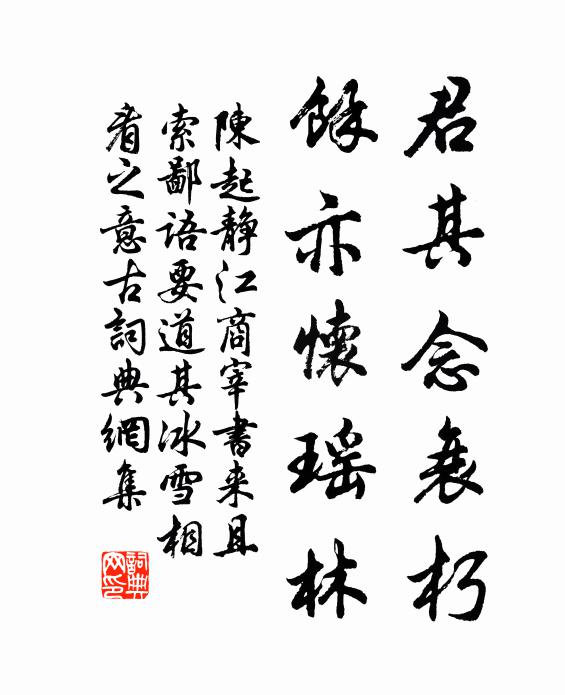 君其念衰朽
餘亦懷瑶林
陳起静江商宰書来且
索鄙语要道其冰雪相
看之意古詞典網集
詞典
网印